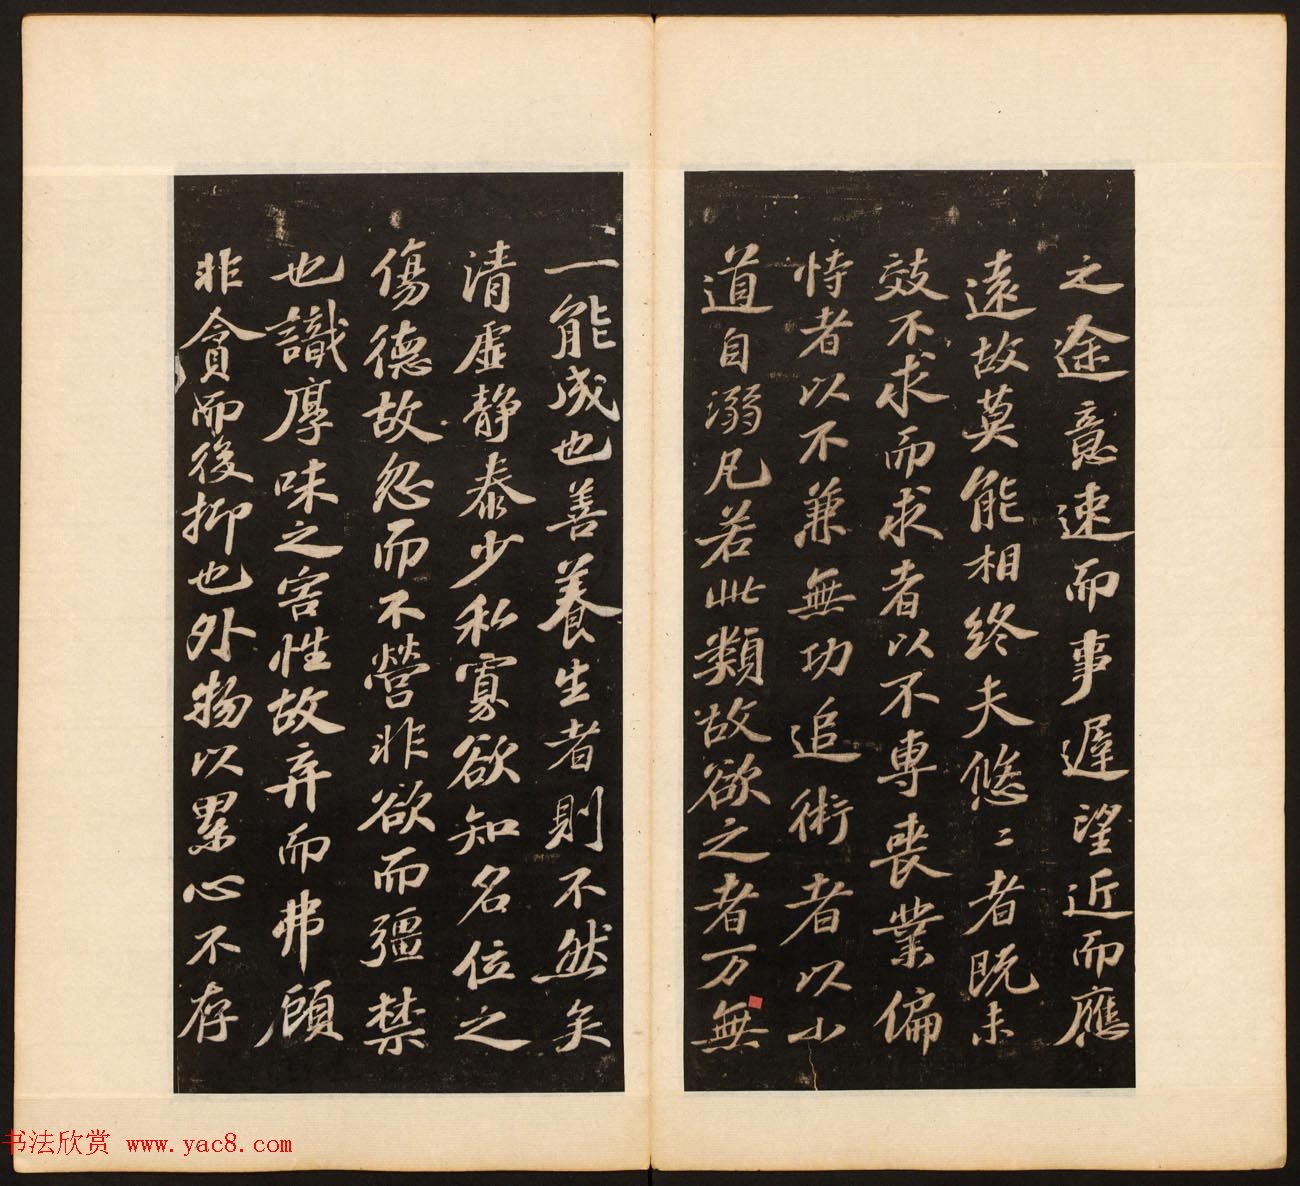 之途意速而事遲望近而應
遠故莫能相終夫悠〻者既未
效不求而求者以不專喪業偏
恃者以不兼無功追術者以小
道自溺凡若此類故欲之者万無
一能成也善養生者則不然矣
清虛静泰少私寡欲知名位之
傷德故忽而不營非欲而彊禁
也識厚味之害性故弃而弗顧
非貪而後抑也外物以累心不存
书法欣赏 www.yac8.com